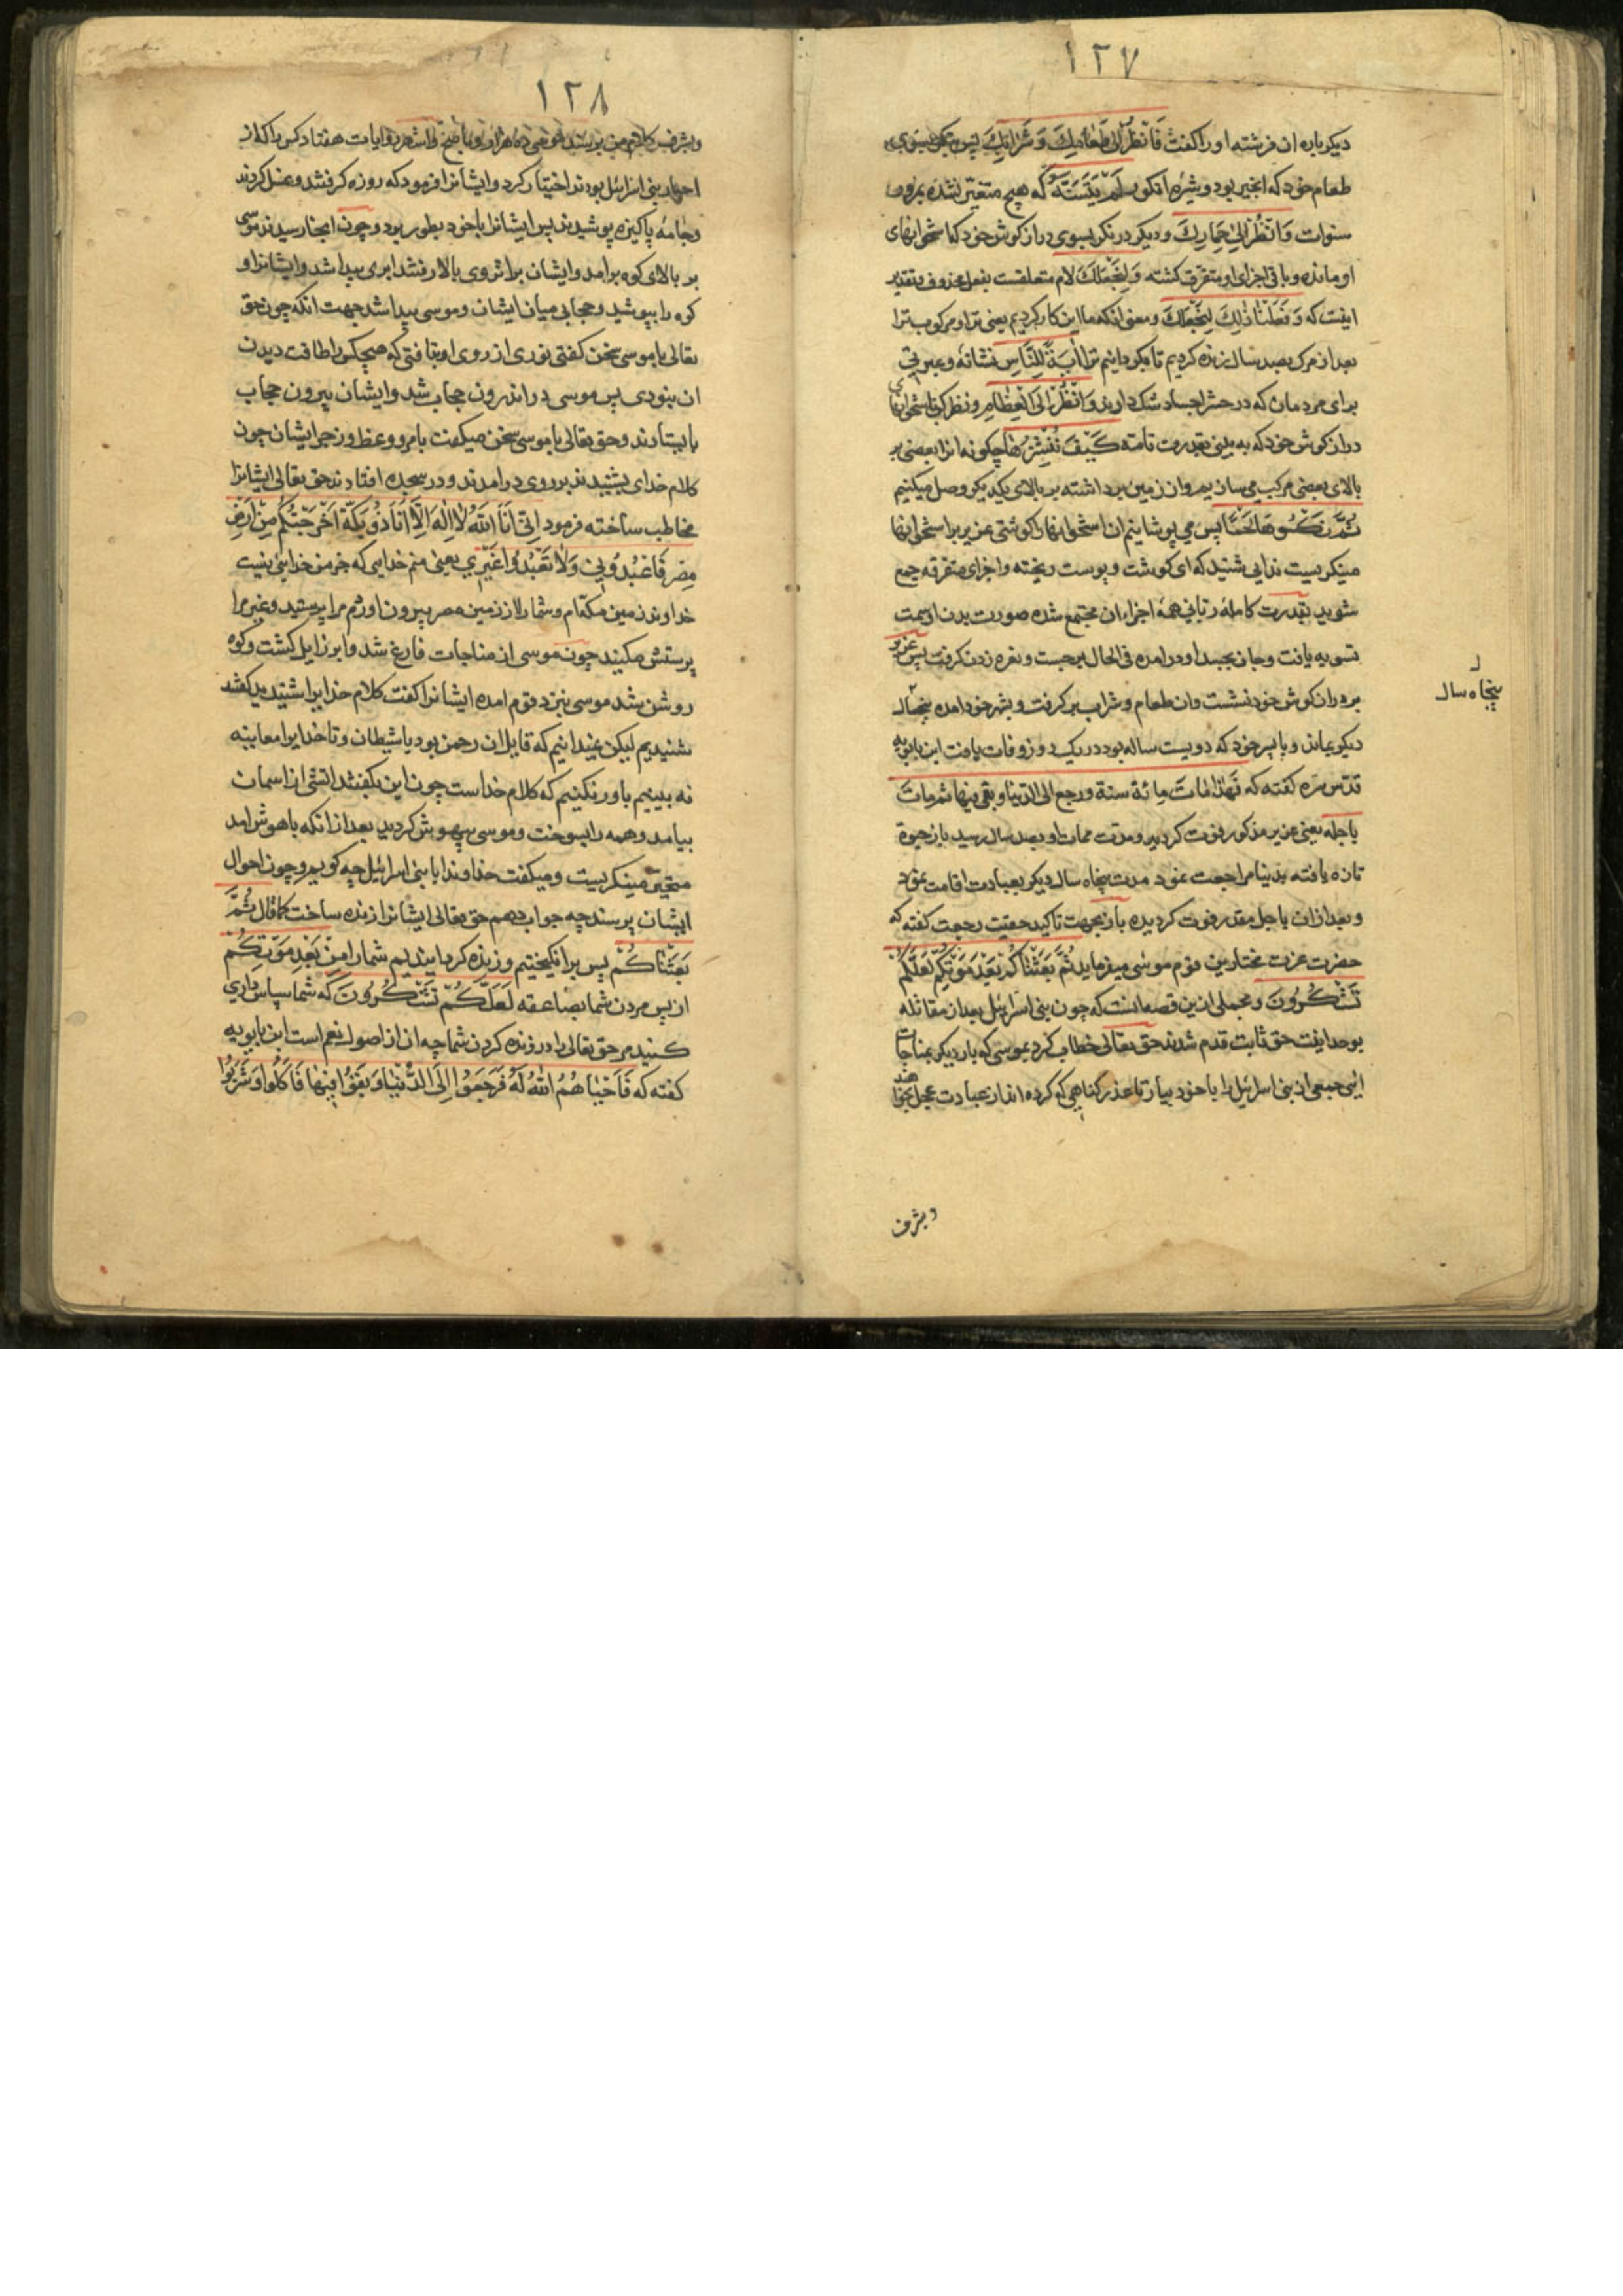 ۱۲۷
دیکرباره ان فرشته اورا کفت فَانْظُرْ اِلیٰ طَعٰامِکَ وَ شَرٰابِکَ پس بنکر بسوی
طعام خود که انجیر بود و بشیره انکور لَمْ یَتَسَنَّهْ که هیچ متغیّر نشده بمرور
سنوات وَانْظُرْ اِلیٰ حِمٰارِکَ و دیکر درنکر بسوی درازکوش خود که استخوانهای
او مانده و باقی اجزای او متفرّق کشته وَلِنَجْعَلَکَ لام متعلقست بفعل محذوف بتقدیر
اینست که وَ فَعَلْنٰا ذٰلِکَ لِنَجْعَلَکَ و معنی انکه ما این کار کردیم یعنی ترا و مرکوب ترا
بعد از مرک بصد سال زنده کردیم تا بکردانیم ترا اٰیَةً لِلنّٰاسِ نشانهٔ و عبرتی
برای مردمان که در حشر اجساد شک دارند وَانْظُرْ اِلَی الْعِظٰامِ و نظر کن باستخوانهای
درازکوش خود که به بینی بقدرت تامّه کَیْفَ نُنْشِزُهٰا چکونه انرا بعضی بر
بالای بعضی مرکب می سازیم و از زمین برداشته بر بالای یکدیکر وصل میکنیم
ثُمَّ نَکْسُوهٰا لَحْمًا پس می پوشانیم ان استخوانهارا کوشتی عزیر بر استخوانها
مینکریست ندایی شنید که ای کوشت و پوست ریخته و اجزای متفرقه جمع
شوید بقدرت کاملهٔ ربّانی همهٔ اجزاء ان مجتمع شده صورت بدن او سمت
تسویه یافت و جان بجسد او درامده فی الحال برجست و نعره زدن کرفت پس عزیر
بر درازکوش خود نشست وان طعام و شراب برکرفت و بشهر خود امده پنجسال
دیکر بماند و با پسر خود که دویست ساله بود در یک روز وفات یافت ابن بابویه
قدّس سرّه کفته که فَهٰذا مٰاتَ مِائة سنة و رجع الی الدّنیا و بقی فیها ثم مات
باجله یعنی عزیر مذکور فوت کردید و مدت ممات او بصد سال رسید باز حیوة
تازه یافته بدنیا مراجعت نمود مدت پنجاه سال دیکر بعبادت اقامت نمود
و بعد ازان باجل مقدر فوت کردیده باز بجهت تاکید حقیّت رجعت کفته که
حضرت عزت مختارین قوم موسی میفرماید ثُمَّ بَعَثْنٰاکُمْ بَعْدَ مَوْتِکُمْ لَعَلَّکُمْ
تَشْکُرُونَ و مجملی ازین قصه انست که چون بنی اسرائیل بعد از مقاتله
بوحدانیت حق ثابت قدم شدند حق تعالی خطاب کرد بموسی که بار دیکر بمناجات
ایی جمعی از بنی اسرائیل را با خود بیار تا عذر کناهی که کرده اند از عبادت عجل بخواهند
پنجاه سال
و بشرف
۱۲۸
و بشرف کلام من برسند
روایات هفتاد کس را که از
احبار بنی اسرائیل بودند اختیار کرد و ایشانرا فرمود که روزه کرفتند و غسل کردند
و جامهٔ پاکیزه پوشیدند پس ایشانرا با خود بطور برد و چون انجا رسیدند موسی
بر بالای کوه برامد و ایشان براثر وی بالا رفتند ابری پیدا شد و ایشانرا و
کوه را بپوشید و حجابی میان ایشان و موسی پیدا شد جهت انکه چون حق
تعالی با موسی سخن کفتی نوری از روی او بتافتی که هیچکس را طاقت دیدن
ان نبودی پس موسی در اندرون حجاب شد و ایشان بیرون حجاب
بایستادند و حق تعالی با موسی سخن میکفت بامر و وعظ و زجر ایشان چون
کلام خدای بشنیدند بر روی درامدند و در سجده افتادند حق تعالی ایشانرا
مخاطب ساخته فرمود اِنّی اَنَا اللهُ لٰا اِلٰهَ اِلّٰا اَنَا ذُو بَکَّةَ اَخْرَجْتُکُمْ مِنْ اَرْضِ
مِصْرَ فَاعْبُدُونی وَلٰا تَعْبُدُوا غَیْرِی یعنی منم خدایی که جز من خدایی نیست
خداوند زمین مکّه ام و شمارا از زمین مصر بیرون اوردم مرا پرستید و غیر مرا
پرستش مکنید چون موسی از مناجات فارغ شد و ابر زایل کشت و کوه
روشن شد موسی بنزد قوم امده ایشانرا کفت کلام خدایرا شنیدید کفتند
شنیدیم لیکن نمیدانیم که قایل ان رحمن بود یا شیطان و تا خدایرا معاینه
نه بینیم باور نکنیم که کلام خداست چون این بکفتند اتشی از اسمان
بیامد و همه را بسوخت و موسی بیهوش کردید بعد از انکه باهوش امد
متحیّر مینکریست و میکفت خداوندا با بنی اسرائیل چه کویم و چون احوال
ایشان پرسند چه جواب دهم حق تعالی ایشانرا زنده ساخت کما قال ثُمَّ
بَعَثْنٰاکُمْ پس برانکیختیم و زنده کردانیدیم شمارا مِنْ بَعْدِ مَوْتِکُمْ
از پس مردن شما بصاعقه لَعَلَّکُمْ تَشْکُرُونَ که شما سپاس داری
کنید مر حق تعالی را در زنده کردن شما چه ان از اصول نعم است ابن بابویه
کفته که فَاَحْیٰاهُمُ اللهُ لَهُ فَرَجَعُوا اِلَی الدُّنْیٰا وَ بَقَوْا فیهٰا فَاَکَلُوا وَ شَرَبُوا